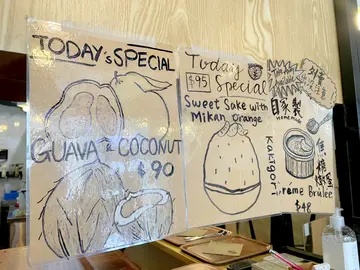 TODAY's SPECIAL
GUAVA & COCONUT
$90
Today
$95 Special
Sweet Sake with
Mikan Orange
Kakigori
自家製
Homemade
Creme Brulee
$48